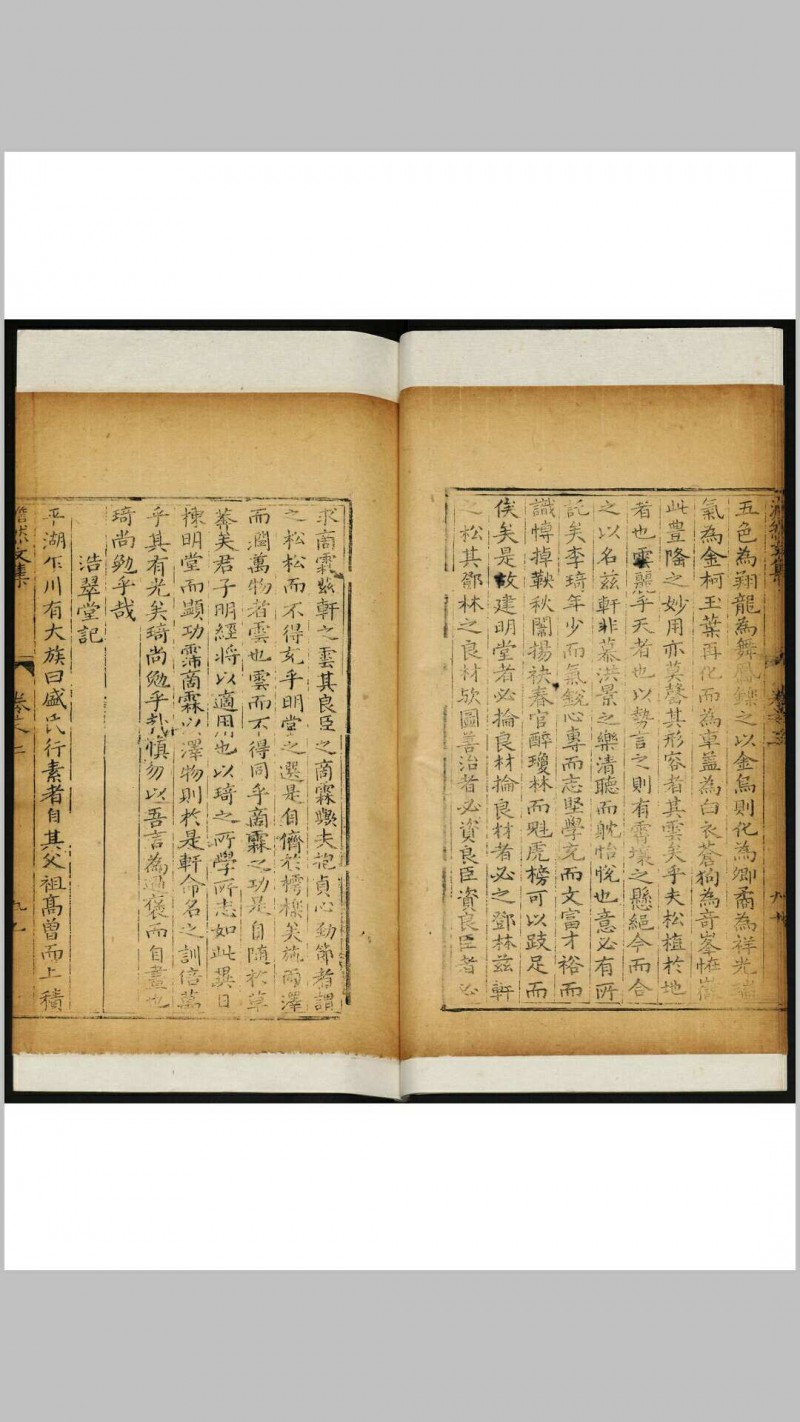 五色為翔龍為舞鑠之以金烏則化為卿矞為祥光
氣為金柯玉葉再化而為車蓋為白衣蒼狗為奇峯恠
此豊隆之妙用亦莫罄其形容者其雲矣乎夫松植於地
者也雲麗乎天者也以勢言之則有霄壤之懸絕今而合
之以名茲軒非慕洪景之樂清聽而躭怡悅也意必有所
託矣李琦年少而氣銳心專而志堅學充而文富才裕而
識愽掉鞅秋闈揚袂春官醉瓊林而魁虎榜可以跂足而
俟矣是故建明堂者必掄良材掄良材者必之鄧林茲軒
之松其鄧林之良材歟圖善治者必資良臣資良臣者必
求啇霖茲軒之雲其良臣之啇霖歟夫抱貞心勁節者謂
之松松而不得充乎明堂之選是自儕於樗櫟矣施雨澤
而潤萬物者雲也雲而不得同乎啇霖之功是自随於草
莾矣君子明經將以適用也以琦之所學所志如此異日
棟明堂而顯功霈啇霖以澤物則於是軒命名之訓倍萬
乎其有光矣琦尚勉乎哉慎勿以吾言為過褒而自畫也
琦尚勉乎哉
浩翠堂記
平湖乍川有大族曰盛氏行素者自其父祖髙曾而上積
澹然文集